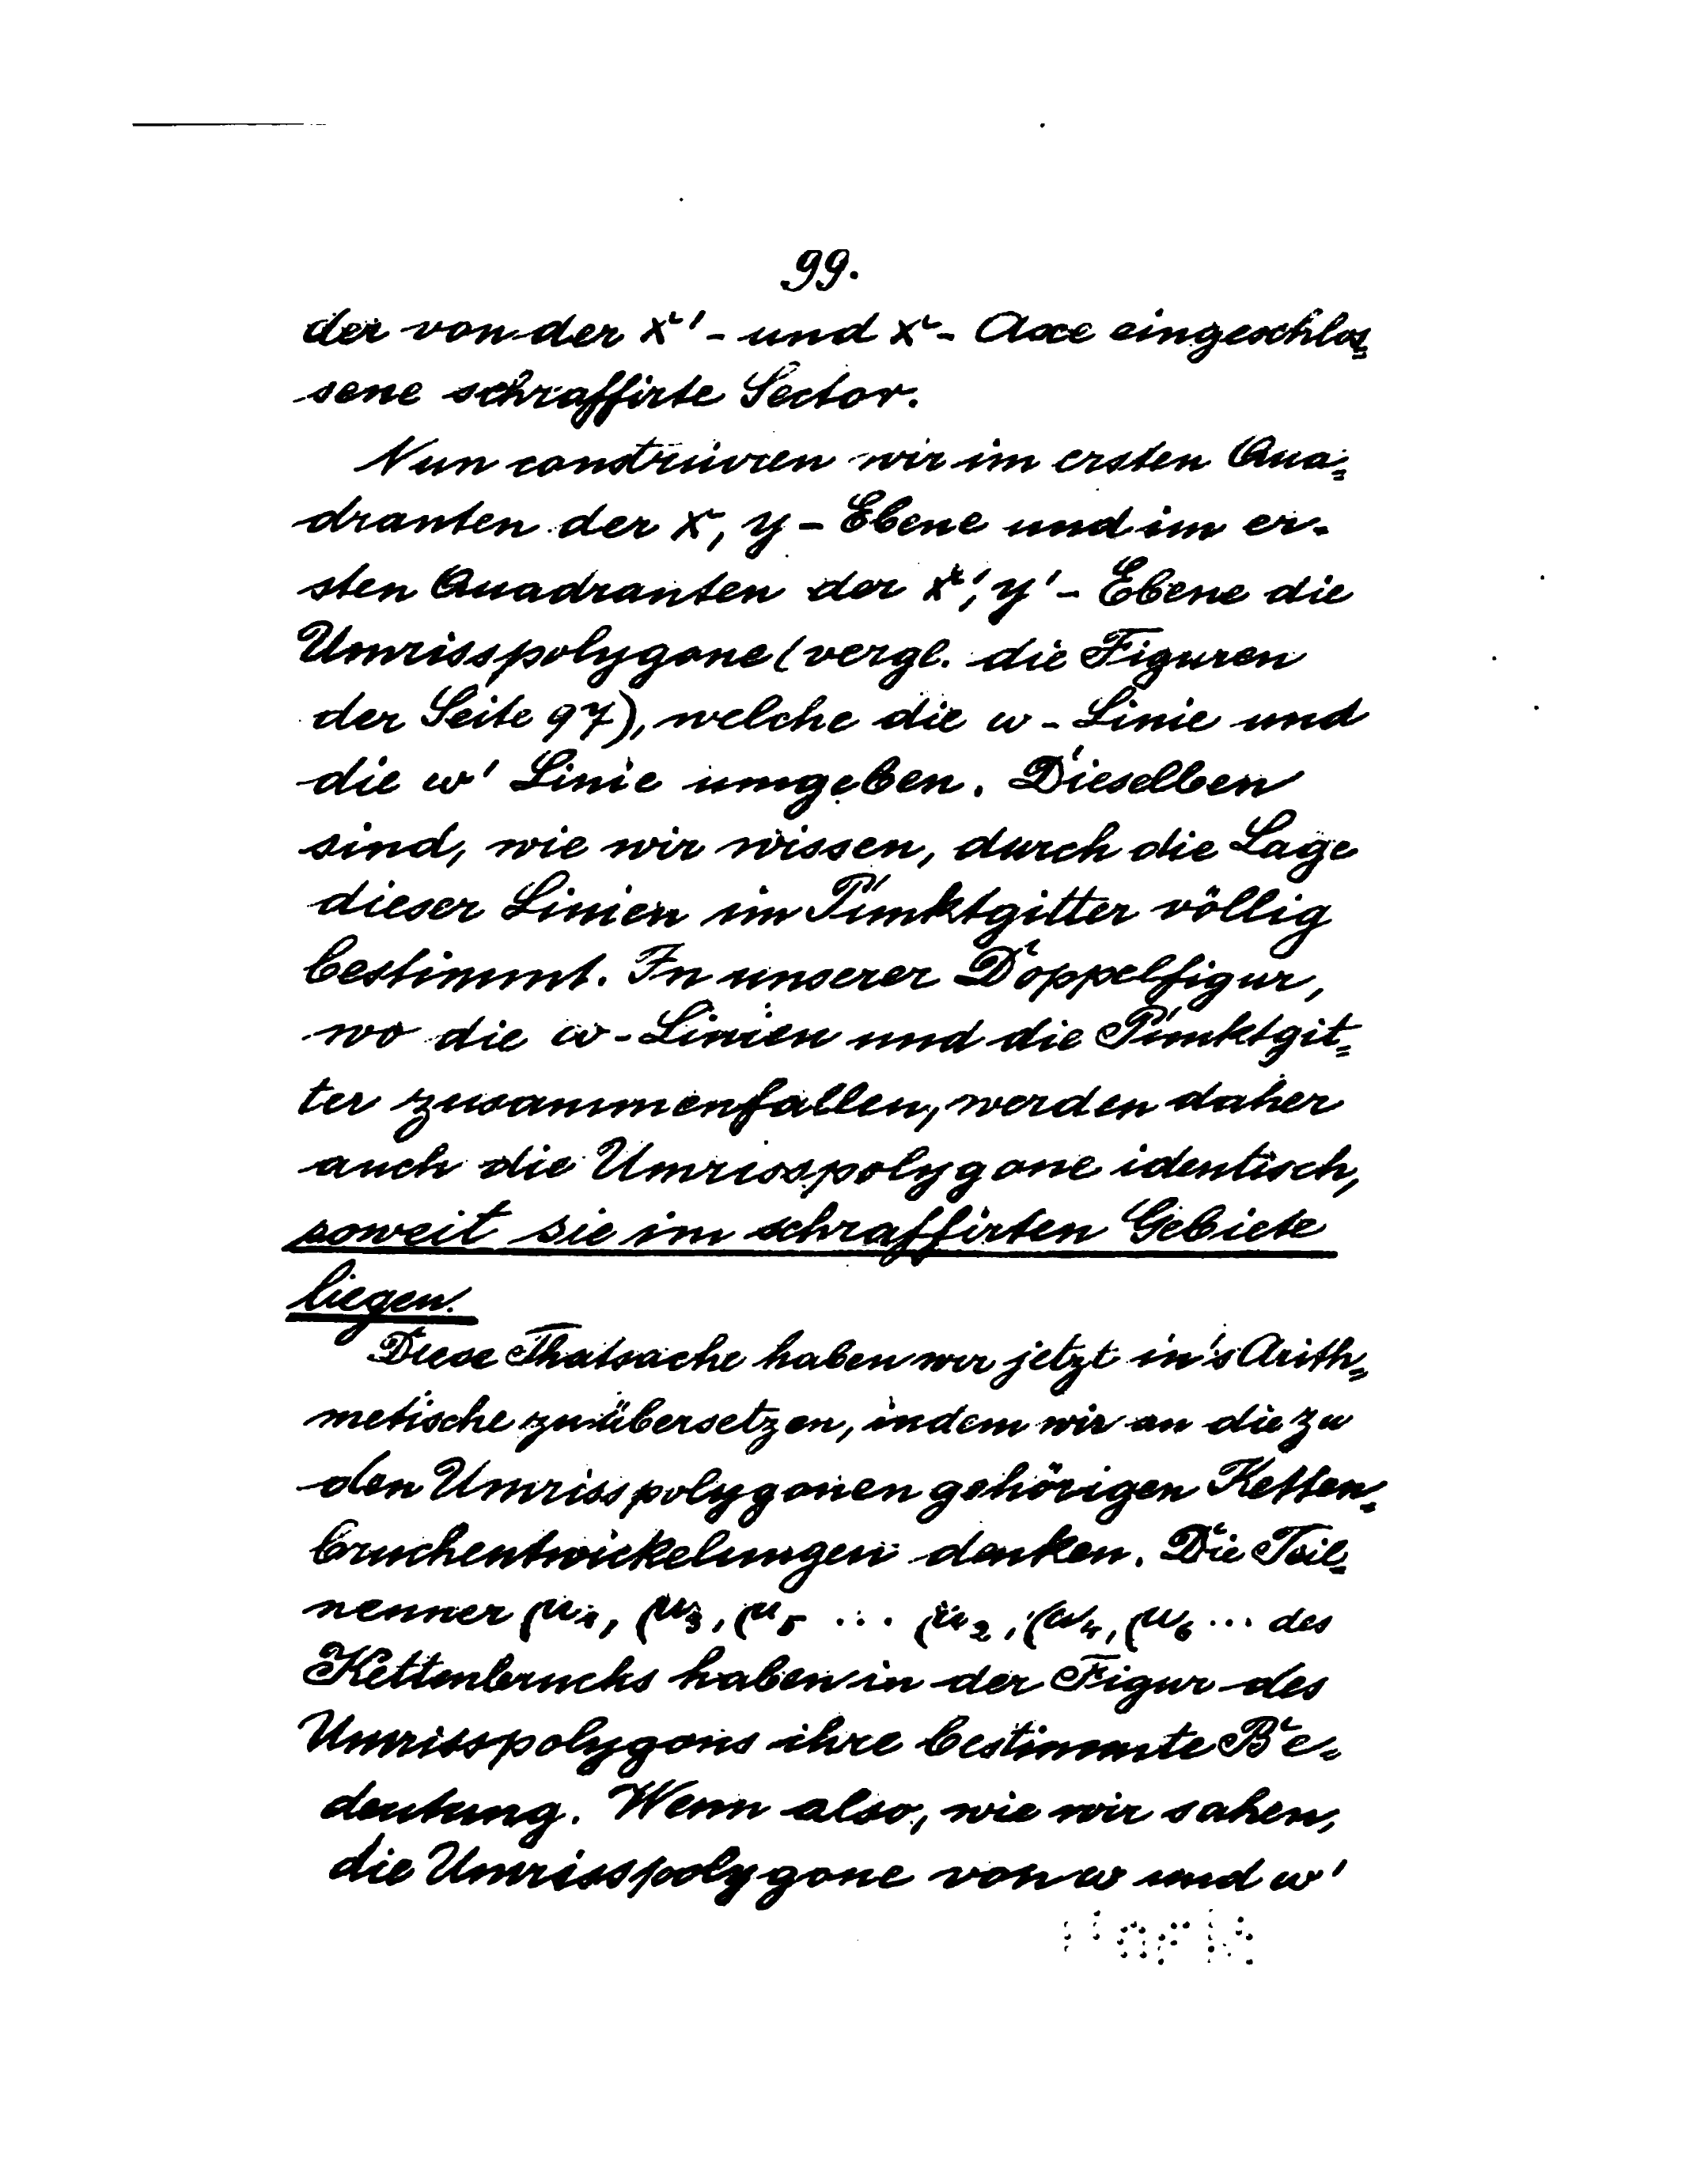 99.
der von der x' - und x - Axe eingeschlos=
sene schraffirte Sector.
Nun construiren wir im ersten Qua=
dranten der x, y - Ebene und im er-
sten Quadranten der x', y' - Ebene die
Umrisspolygone (vergl. die Figuren
der Seite 97), welche die ω - Linie und
die ω' Linie umgeben. Dieselben
sind, wie wir wissen, durch die Lage
dieser Linien im Punktgitter völlig
bestimmt. In unserer Doppelfigur,
wo die ω - Linien und die Punktgit=
ter zusammenfallen, werden daher
auch die Umrisspolygone identisch,
soweit sie im schraffirten Gebiete
liegen.
Diese Thatsache haben wir jetzt in's Arith=
metische zu übersetzen, indem wir an die zu
den Umrisspolygonen gehörigen Ketten=
bruchentwickelungen denken. Die Teil=
nenner μ₁, μ₃, μ₅ ... μ₂, μ₄, μ₆ ... des
Kettenbruchs haben in der Figur des
Umrisspolygons ihre bestimmte Be=
deutung. Wenn also, wie wir sahen,
die Umrisspolygone von ω und ω'